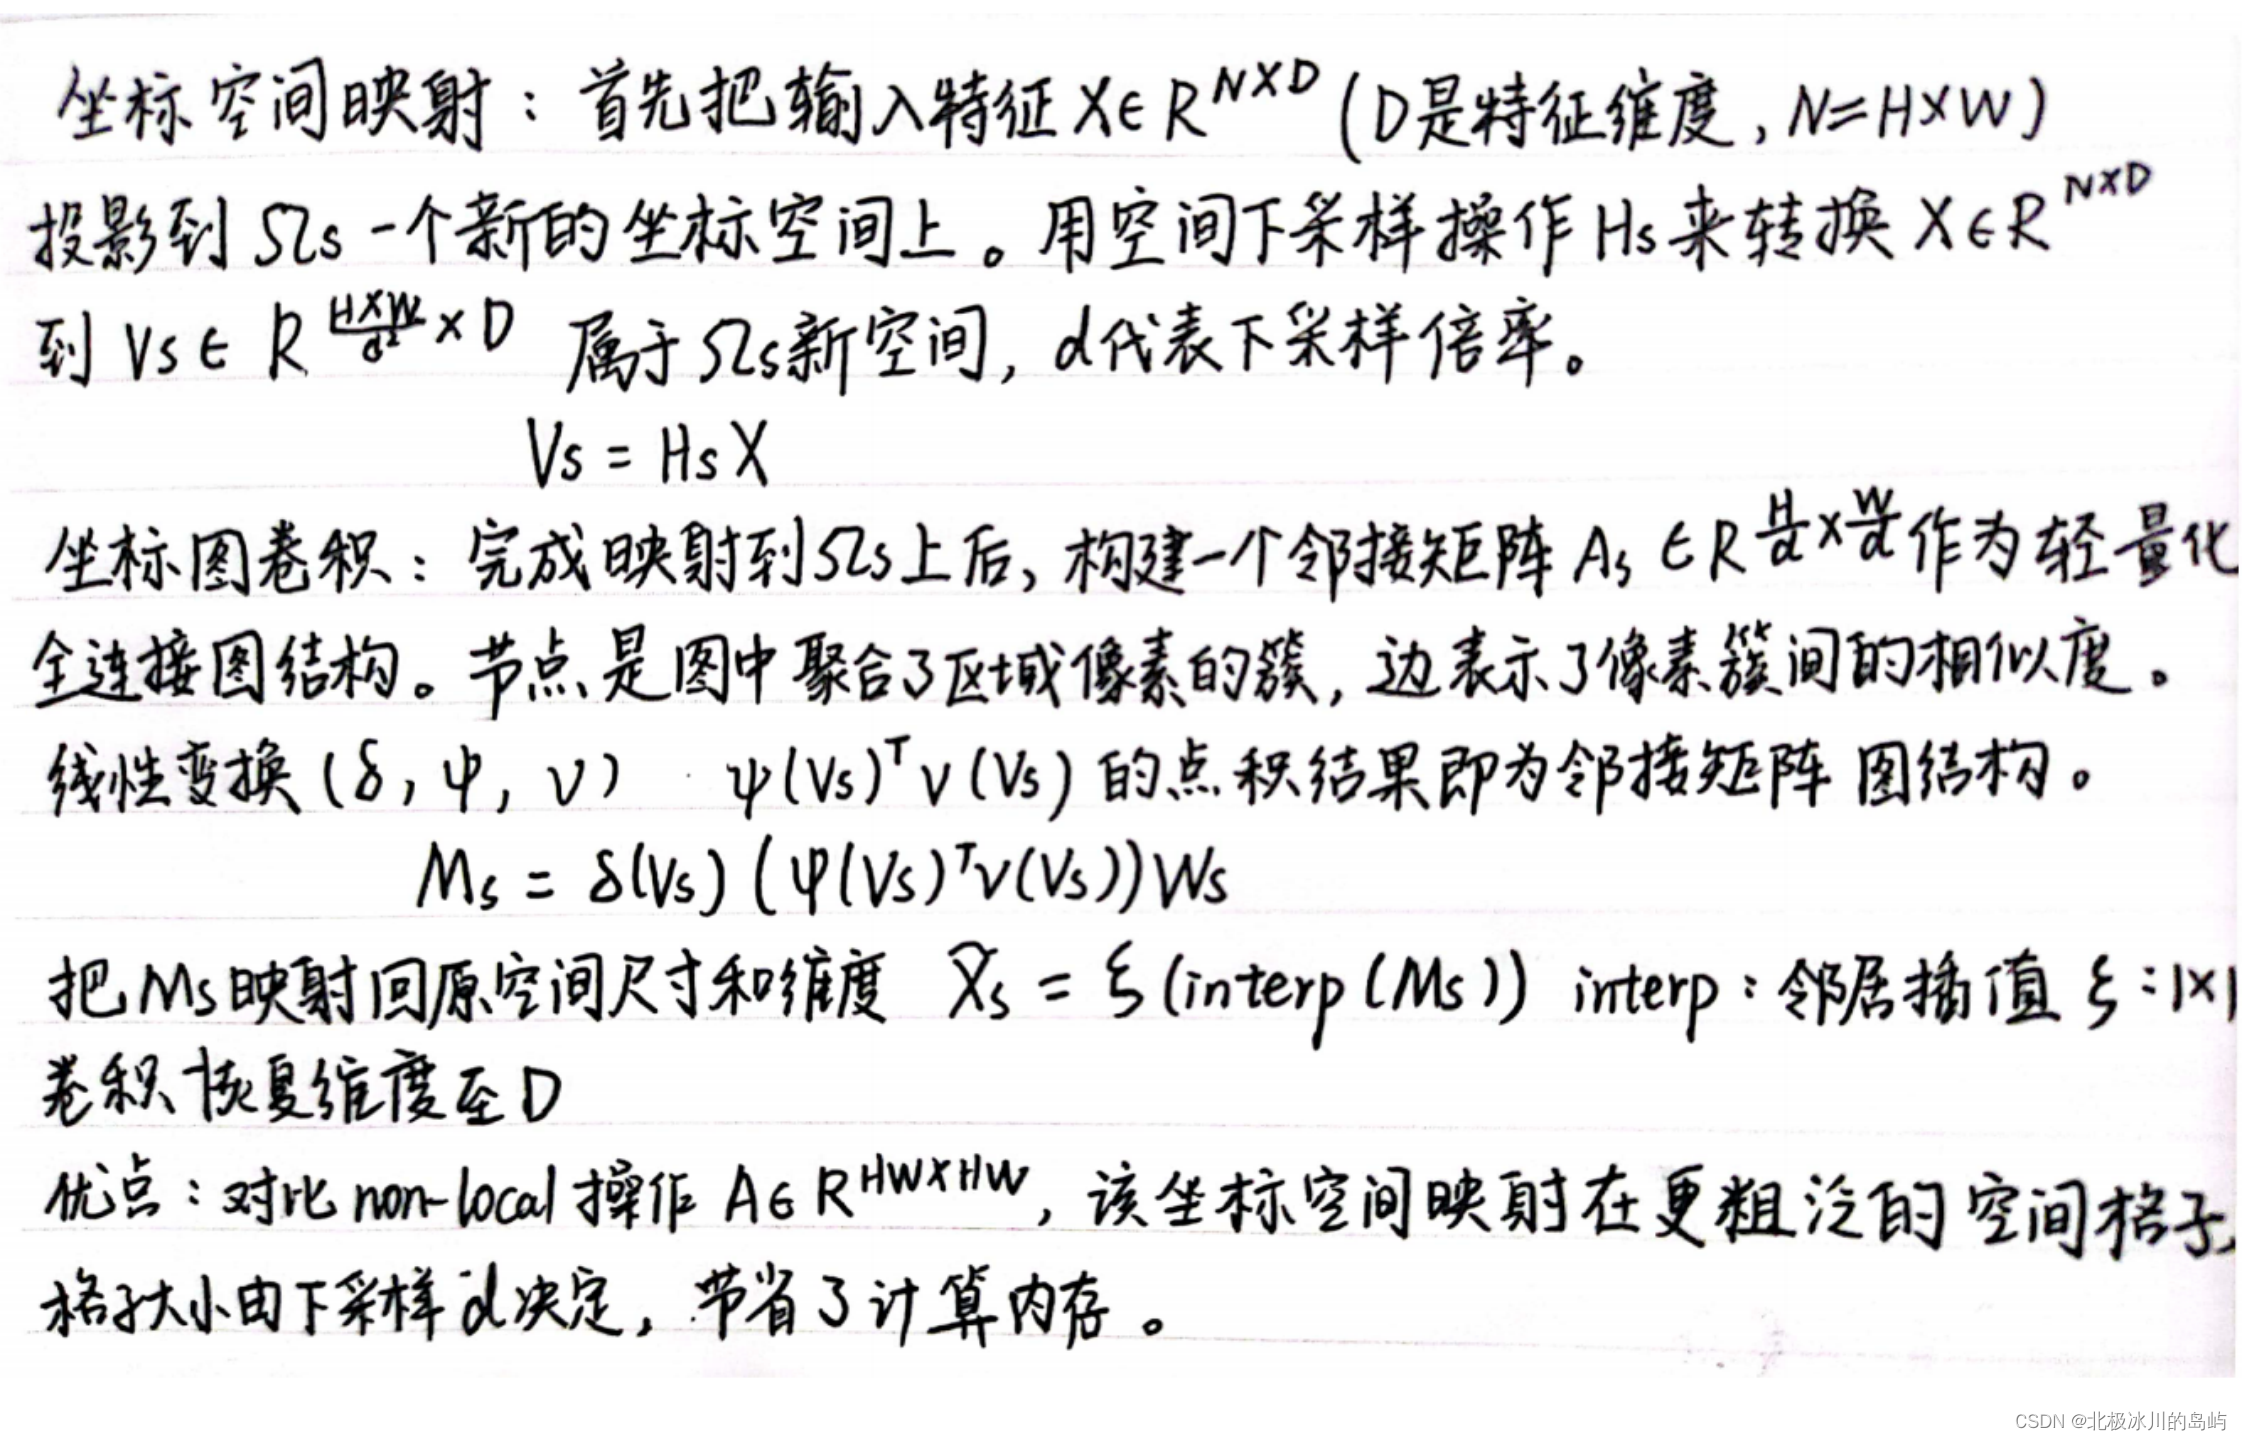 坐标空间映射：首先把输入特征 X∈R^{N×D} (D是特征维度，N=H×W)
投影到 Ωs 一个新的坐标空间上。用空间下采样操作 Hs 来转换 X∈R^{N×D}
到 Vs∈ R^{\frac{H×W}{d²}×D} 属于Ωs新空间，d代表下采样倍率。
Vs = HsX
坐标图卷积：完成映射到Ωs上后，构建一个邻接矩阵 As∈R^{\frac{H}{d}×\frac{W}{d}} 作为轻量化
全连接图结构。节点是图中聚合了区域像素的簇，边表示了像素簇间的相似度。
线性变换 (δ, ψ, ν) ψ(Vs)^T ν(Vs) 的点积结果即为邻接矩阵 图结构。
Ms = δ(Vs) (ψ(Vs)^T ν(Vs)) Ws
把Ms映射回原空间尺寸和维度 X̃s = ξ(interp(Ms)) interp：邻居插值 ξ：1×1
卷积恢复维度至D
优点：对比 non-local 操作 A∈R^{HW×HW}，该坐标空间映射在更粗泛的空间格子，
格子大小由下采样d决定，节省了计算内存。
CSDN @北极冰川的岛屿